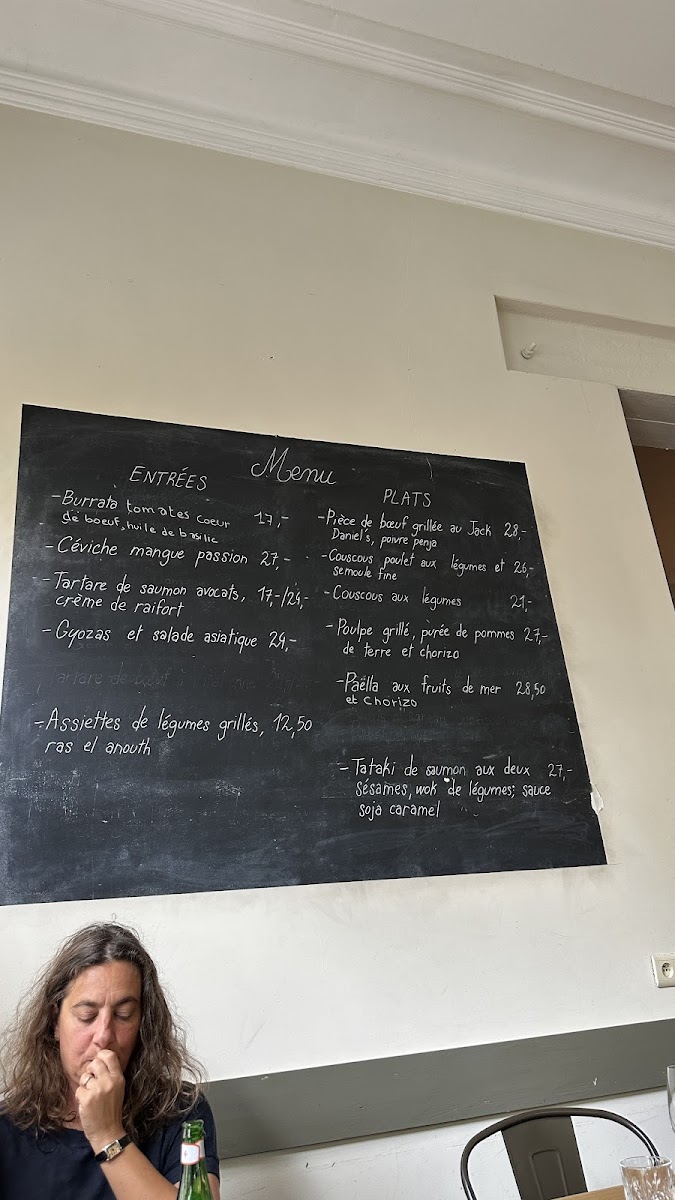 Menu
ENTRÉES
-Burrata tomates coeur 17,-
de boeuf, huile de basilic
-Céviche mangue passion 27,-
-Tartare de saumon avocats, 17,-/24,-
crème de raifort
-Gyozas et salade asiatique 24,-
-Assiettes de légumes grillés, 12,50
ras el anouth
PLATS
-Pièce de bœuf grillée au Jack 28,-
Daniel's, poivre penja
-Couscous poulet aux légumes et 26,-
semoule fine
-Couscous aux légumes 21,-
-Poulpe grillé, purée de pommes 27,-
de terre et chorizo
-Paëlla aux fruits de mer 28,50
et chorizo
-Tataki de saumon aux deux 27,-
sésames, wok de légumes; sauce
soja caramel